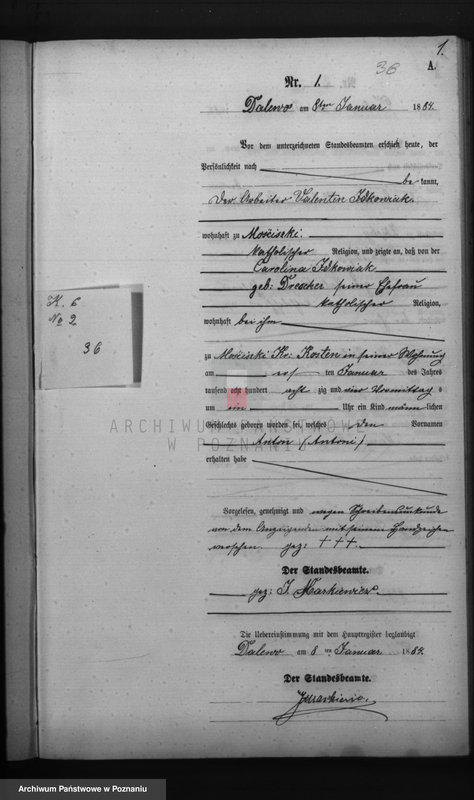 1.
36
A.
Nr. 1.
Dalewo am 8ten Januar 1884.
Vor dem unterzeichneten Standesbeamten erschien heute, der
Persönlichkeit nach
be kannt,
der Arbeiter Valentin Idkowiak
wohnhaft zu Mościszki.
katholischer Religion, und zeigte an, daß von der
Carolina Idkowiak
geb: Drescher seiner Ehefrau
katholischer Religion,
wohnhaft bei ihm
zu Mościszki Kr: Kosten in seiner Wohnung
am ersten Januar des Jahres
tausend acht hundert acht zig und vier Vormittag s
um ein Uhr ein Kind männlichen
Geschlechts geboren worden sei, welches den Vornamen
Anton (Antoni)
erhalten habe
Vorgelesen, genehmigt und wegen Schreibensunkunde
von dem Anzeigenden mit seinem Handzeichen
versehen. gez: +++.
Der Standesbeamte.
gez: J. Markiewicz.
Die Uebereinstimmung mit dem Hauptregister beglaubigt
Dalewo am 8 ten Januar 1884.
Der Standesbeamte.
K. 6
No 2
36
ARCHIWUM PAŃSTWOWE
W POZNANIU
Archiwum Państwowe w Poznaniu